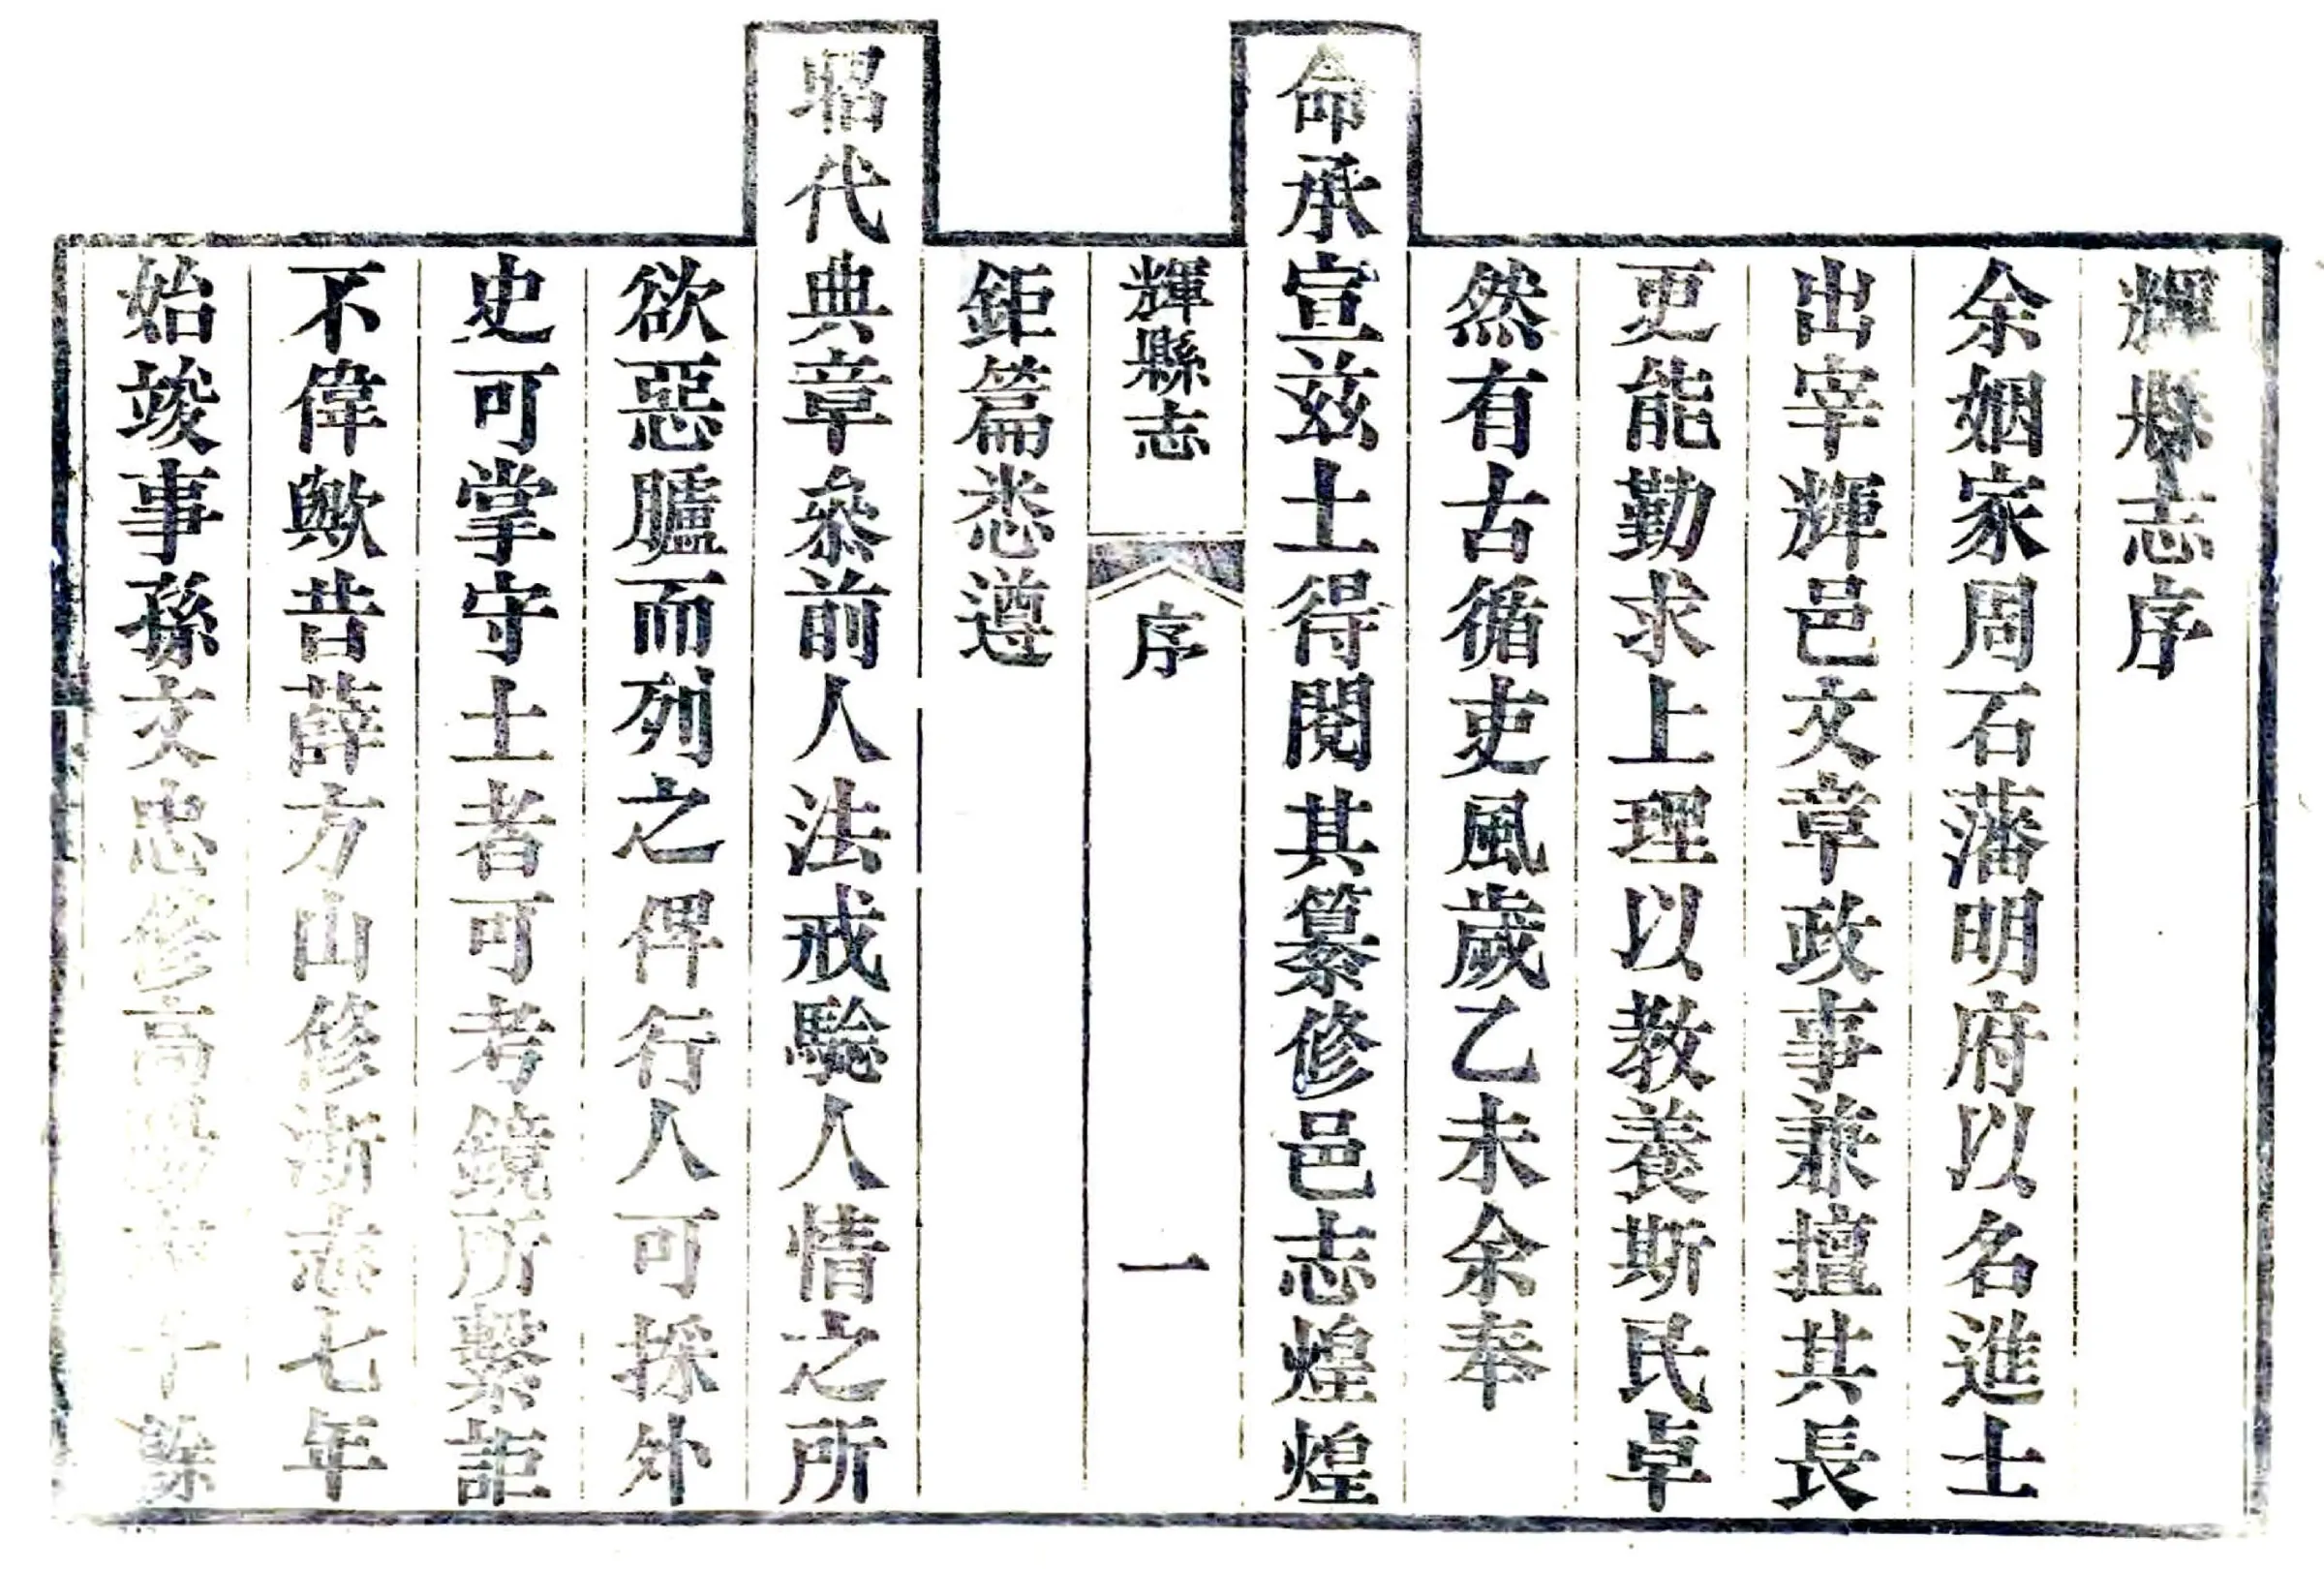 輝縣志序
余姻家周石藩明府以名進士
出宰輝邑文章政事兼擅其長
更能勤求上理以教養斯民卓
然有古循吏風歲乙未余奉
命承宣兹土得閱其纂修邑志煌煌
輝縣志 序 一
鉅篇悉遵
昭代典章叅前人法戒驗人情之所
欲惡臚而列之俾行人可採外
史可掌守土者可考鏡所繫詎
不偉歟昔薛方山修浙志七年
始竣事孫文忠修高陽 十餘